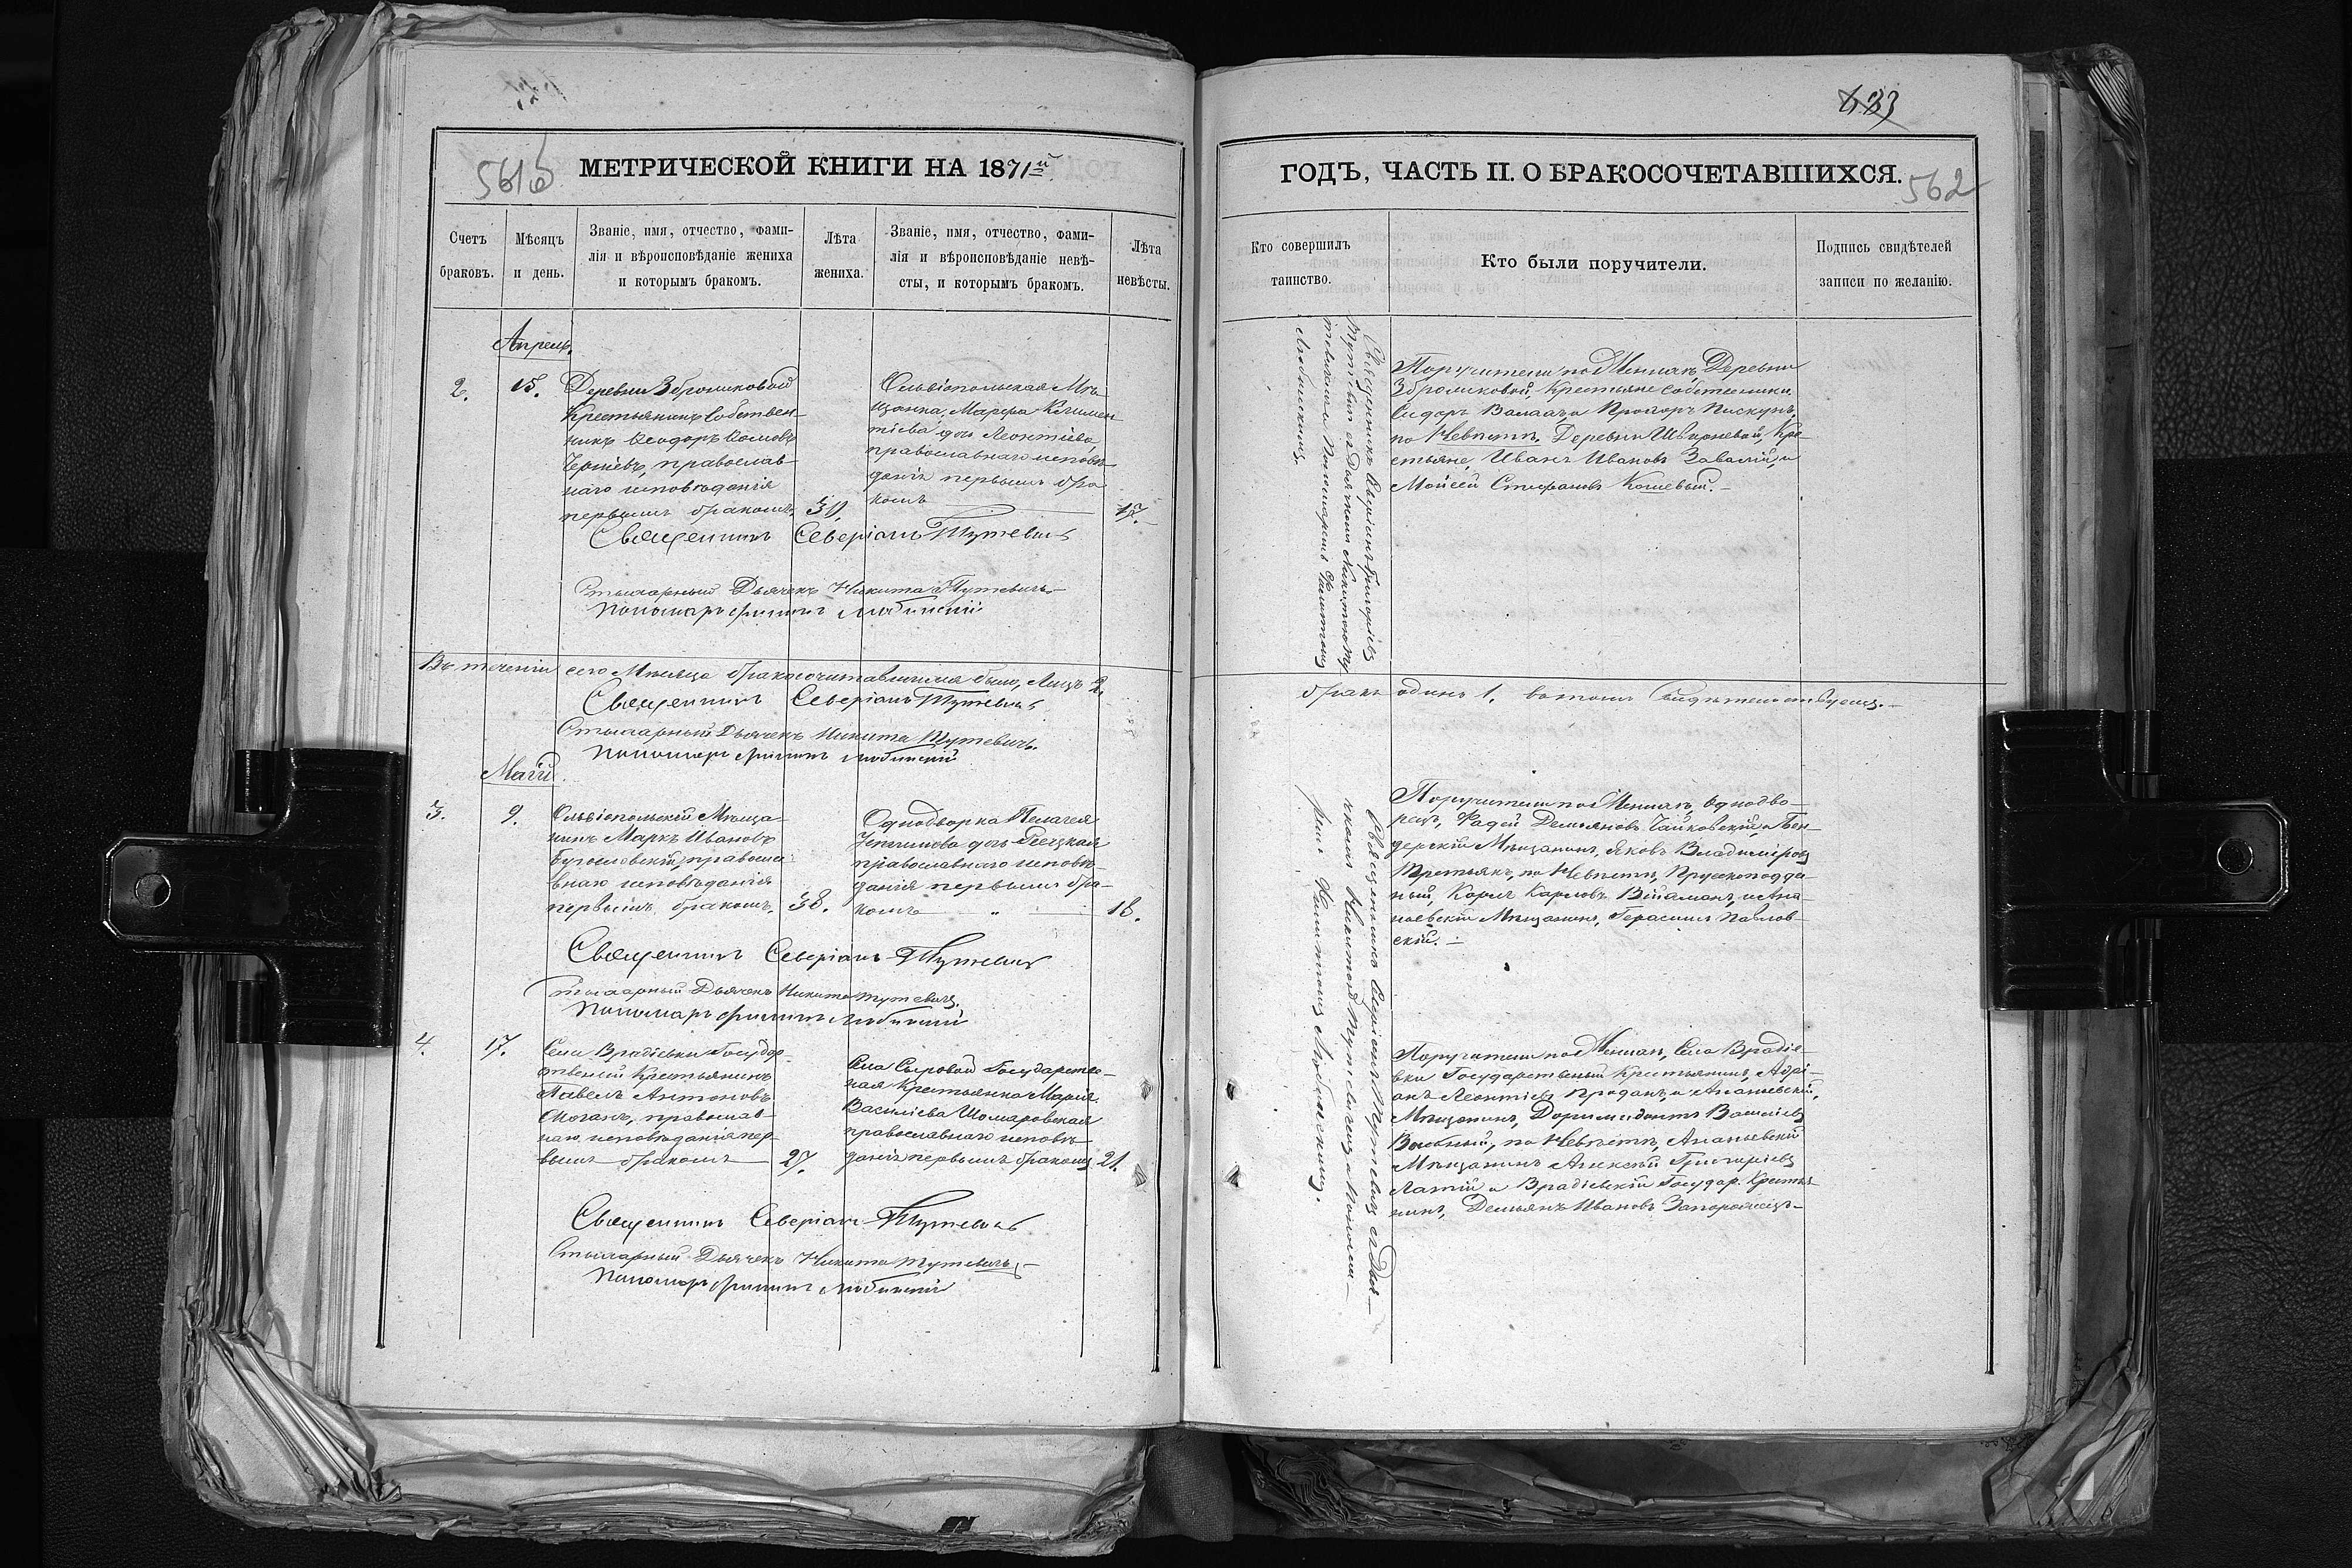 633
561б
МЕТРИЧЕСКОЙ КНИГИ НА 1871й
Счетъ браковъ.
Мѣсяцъ и день.
Званіе, имя, отчество, фами-
лія и вѣроисповѣданіе жениха
и которымъ бракомъ.
Лѣта жениха.
Званіе, имя, отчество, фами-
лія и вѣроисповѣданіе невѣ-
сты, и которымъ бракомъ.
Лѣта невѣсты.
Апрель.
2.
15.
Деревни Зброшковой
Крестьянинъ Собствен-
никъ Ѳеодоръ
православ-
наго исповѣданія
первымъ бракомъ,
30.
Ольвіопольская Мѣ-
щанка, Марфа Климен
тіева дочь Леонтіева,
православнаго исповѣ-
данія первымъ бра
комъ
17.
Священникъ Северіанъ Тутевичъ
Стихарный Дьячекъ Никита Тутевичъ
Пономарь Филипъ Любинскій
Въ теченіи сего Мѣсяца бракосочитавшихся было, Лицъ 2.
Священникъ Северіанъ Тутевичъ
Стихарный Дьячекъ Никита Тутевичъ.
Пономарь Филипъ Любинскій
Маій
3.
9.
Ольвіопольскій Мѣща-
нинъ Маркъ Ивановъ
православ-
внаго исповѣданія
первымъ бракомъ,
38.
Однодворка Пелагея
дочь
православнаго исповѣ-
данія первымъ бра-
комъ
18.
Священникъ Северіанъ Тутевичъ
Стихарный Дьячекъ Никита Тутевичъ
Пономарь Филипъ Любинскій
4.
17.
Села Врадіевки Государ-
ственій Крестьянинъ
Павелъ Антоновъ
православ-
наго исповѣданія пер-
вымъ бракомъ
27.
Села Сыровой Государствен-
ная Крестьянка Марія
Василіева Шомаровская
православнаго исповѣ-
данія первымъ бракомъ
21.
Священникъ Северіанъ Тутевичъ
Стихарный Дьячекъ Никита Тутевичъ
Пономарь Филипъ Любинскій
ГОДЪ, ЧАСТЬ II. О БРАКОСОЧЕТАВШИХСЯ.
562
Кто совершилъ
таинство.
Кто были поручители.
Подпись свидѣтелей
записи по желанію.
Священникъ Северіанъ Григоріевъ
Тутевичъ съ Дьячкомъ Никитою Ту
тевичемъ и Пономаремъ Филиппомъ
Любинскимъ.
Поручители по Женихѣ, Деревни
Зброшковой, Крестьяне собственники
Сидоръ и Прохоръ Пискунъ,
по Невѣстѣ, Деревни Кре-
стьяне, Иванъ Ивановъ Завалій, и
Мойсей Стефановъ Кошевый.
бракъ одинъ 1. въ томъ свидѣтельствуемъ.
Священникъ Северіанъ Тутевичъ съ Дья-
чкомъ Никитой Тутевичемъ и Понома-
ремъ Филиппомъ Любинскимъ.
Поручители по Женихѣ, Однодво-
рецъ, Фадей Демьяновъ Чайковскій, и Бен-
дерскій Мѣщанинъ, Яковъ Владиміровъ
Третьякъ, по Невѣстѣ, Прускоподда-
ный, Карлъ Карловъ и Ана
ньевскій Мѣщанинъ, Герасимъ Павлов-
скій.
Поручители по Женихѣ, Села Врадіе-
вки Государственый Крестьянинъ, Адрі-
анъ Леонтіевъ Проданъ, и Ананьевскій,
Мѣщанинъ, Доримедонтъ Василіевъ
по Невѣстѣ, Ананьевскій
Мѣщанинъ Алексѣй Григоріевъ
и Врадіевскій Государ. Крестья
нинъ, Демьянъ Ивановъ Запорожецъ